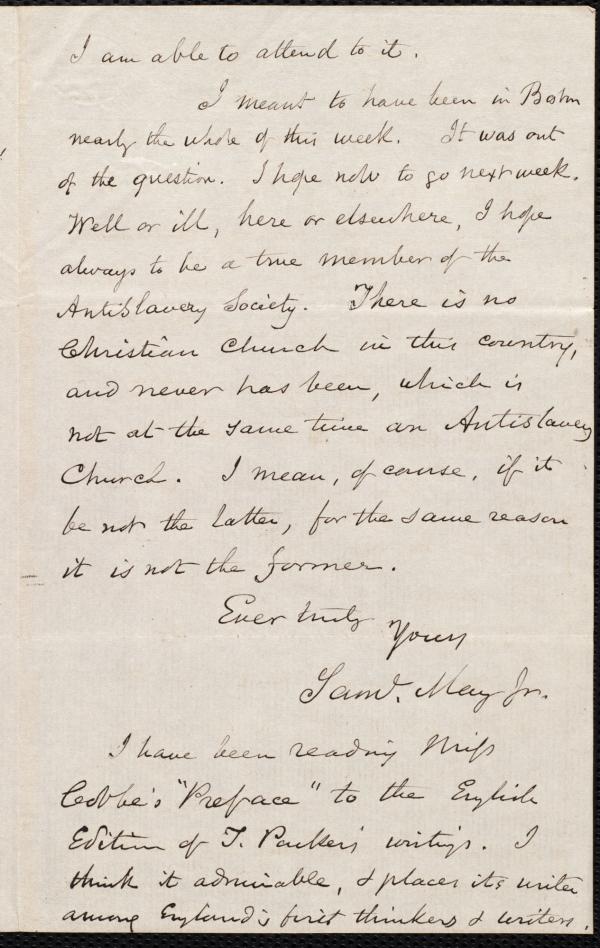 I am able to attend to it.
I meant to have been in Boston
nearly the whole of this week. It was out
of the question. I hope now to go next week.
Well or ill, here or elsewhere, I hope
always to be a true member of the
Antislavery Society. There is no
Christian Church in this country,
and never has been, which is
not at the same time an Antislavery
Church. I mean, of course, if it
be not the latter, for the same reason
it is not the former.
Ever truly
Yours
Saml. May Jr.
I have been reading Miss
Cobbe's "Preface" to the English
Edition of T. Parker's writings. I
think it admirable, & places its writer
among England's first thinkers & writers.